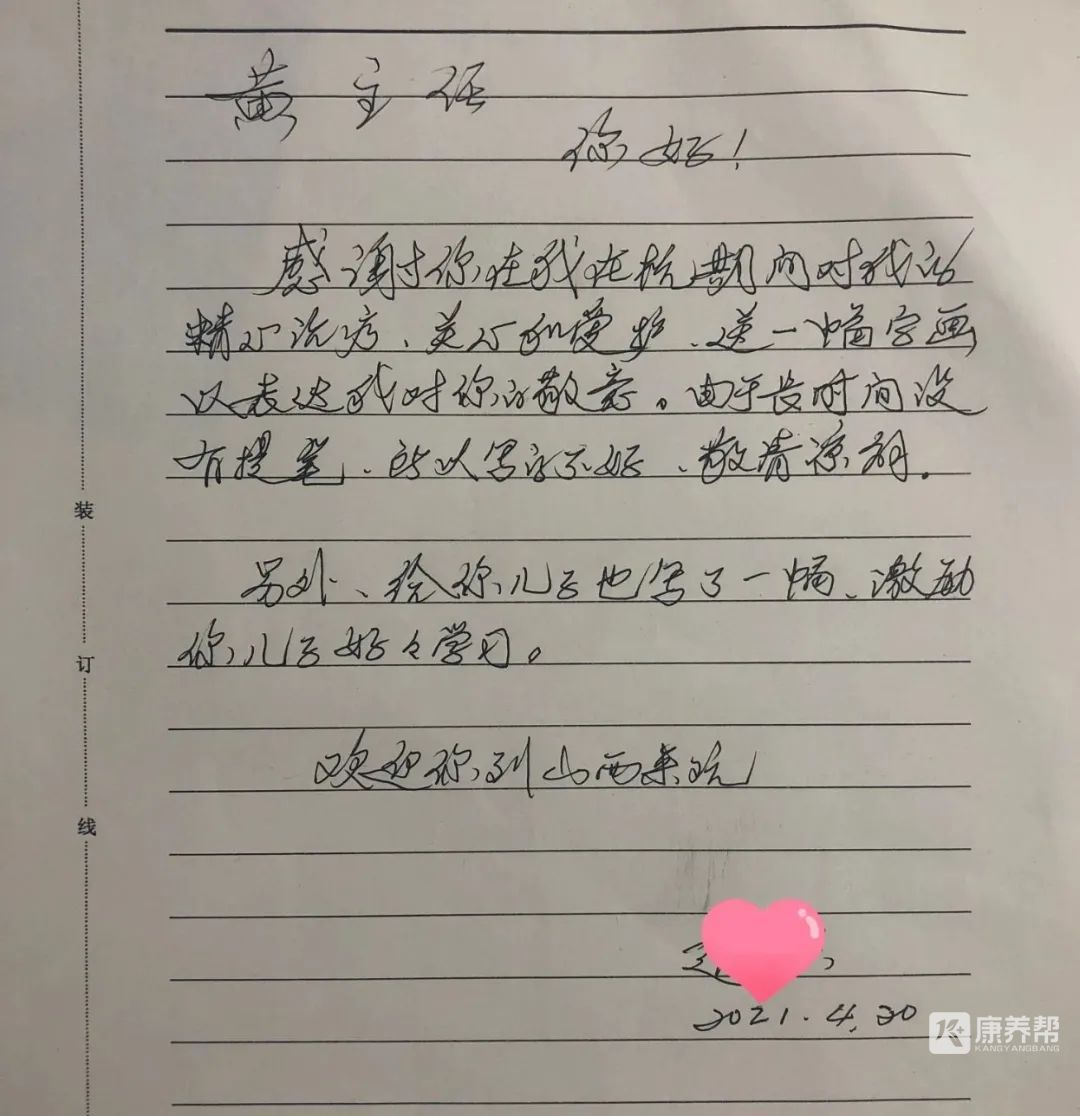 黄主任
你好！
感谢你在我住杭期间对我的
精心治疗、关心和爱护、送一幅字画
以表达我对你的敬意。由于长时间没
有提笔、所以写的不好、敬请谅解。
另外、给你儿子也写了一幅、激励
你儿子好々学习。
欢迎你到山西来玩
2021.4.20
装
订
线
K+ 康养帮
KANGYANGBANG